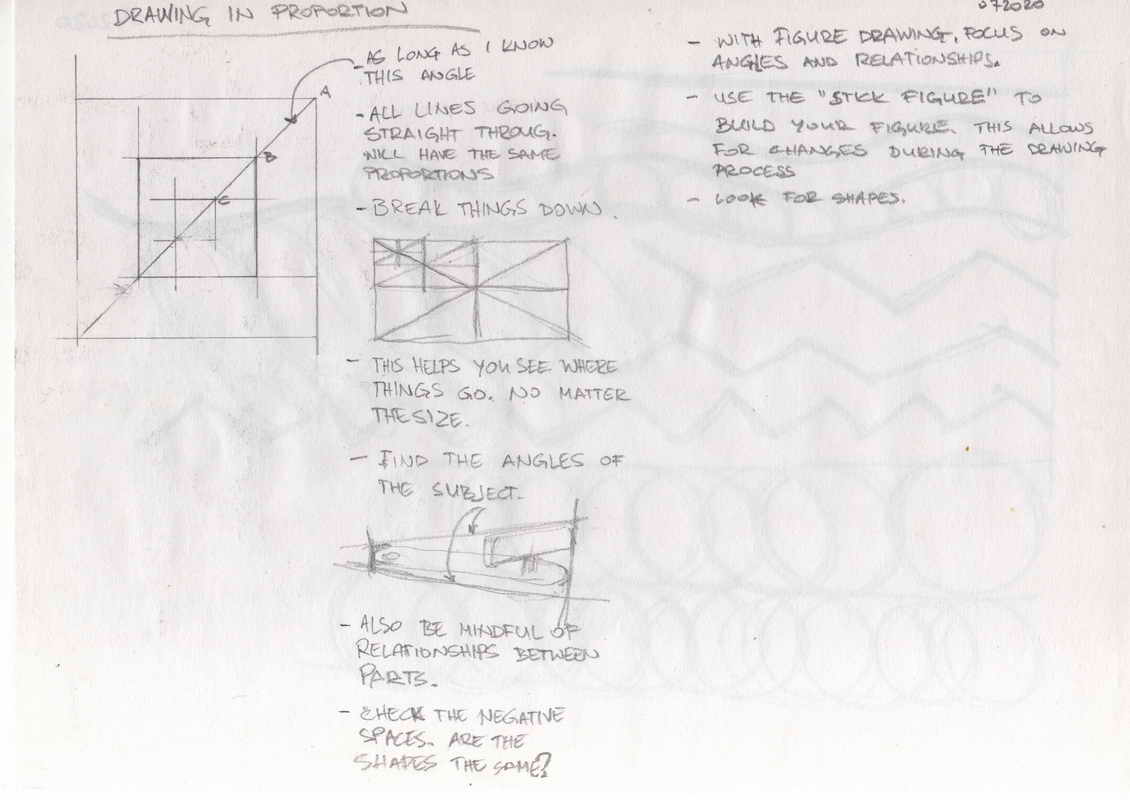 DRAWING IN PROPORTION
072020
- AS LONG AS I KNOW
THIS ANGLE
A
B
C
- ALL LINES GOING
STRAIGHT THROUG.
WILL HAVE THE SAME
PROPORTIONS
- BREAK THINGS DOWN.
- THIS HELPS YOU SEE WHERE
THINGS GO. NO MATTER
THE SIZE.
- FIND THE ANGLES OF
THE SUBJECT.
- ALSO BE MINDFUL OF
RELATIONSHIPS BETWEEN
PARTS.
- CHECK THE NEGATIVE
SPACES. ARE THE
SHAPES THE SAME?
- WITH FIGURE DRAWING, FOCUS ON
ANGLES AND RELATIONSHIPS.
- USE THE "STICK FIGURE" TO
BUILD YOUR FIGURE. THIS ALLOWS
FOR CHANGES DURING THE DRAWING
PROCESS
- LOOK FOR SHAPES.